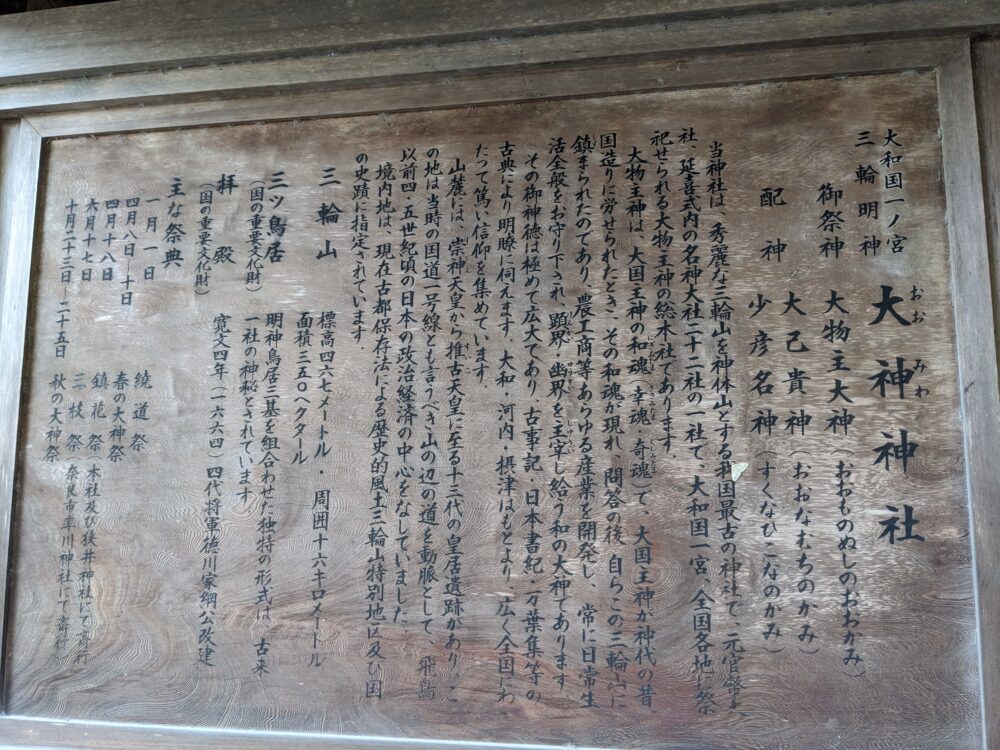 大和国一ノ宮
三輪明神
大神神社
おお みわ
御祭神 大物主大神（おおものぬしのおおかみ）
配神 大己貴神（おおなむちのかみ）
少彦名神（すくなひこなのかみ）
当神社は、秀麗な三輪山を神体山とする我国最古の神社で、元官幣大
社、延喜式内の名神大社二十二社の一社て、大和国一宮、全国各地に祭
祀せられる大物主神の総本社であります。
大物主神は、大国主神の和魂（幸魂、奇魂）て、大国主神が神代の昔、
国造りに労せられたとき、その和魂が現れ、問答の後、自らこの三輪山に
鎮まられたのてあり、農工商等あらゆる産業を開発し、常に日常生
活全般をお守り下され、顕界・幽界を主宰し給う和の大神てあります
その御神徳は極めて広大てあり、古事記・日本書紀・万葉集等の
古典により明瞭に伺えます。大和・河内・摂津はもとより、広く全国にわ
たって篤い信仰を集めています。
山麓には、崇神天皇から推古天皇に至る十三代の皇居遺跡があり、こ
の地は当時の国道一号線とも言うべき山の辺の道を動脈として、飛鳥
以前四・五世紀頃の日本の政治経済の中心をなしていました。
境内地は、現在古都保存法による歴史的風土三輪山特別地区及び国
の史蹟に指定されています。
三輪山 標高四六七メートル・周囲十六キロメートル
面積三五〇ヘクタール
三ツ鳥居 明神鳥居三基を組合わせた独特の形式は、古来
（国の重要文化財） 一社の神秘とされています
拝殿 寛文四年（一六六四）四代将軍徳川家綱公改建
（国の重要文化財）
主な祭典
一月一日 繞道祭
四月八日～十日 春の大神祭
四月十八日 鎮花祭（本社及び狭井神社にて斎行）
六月十七日 三枝祭（奈良市率川神社にて斎行）
十月二十三日～二十五日 秋の大神祭